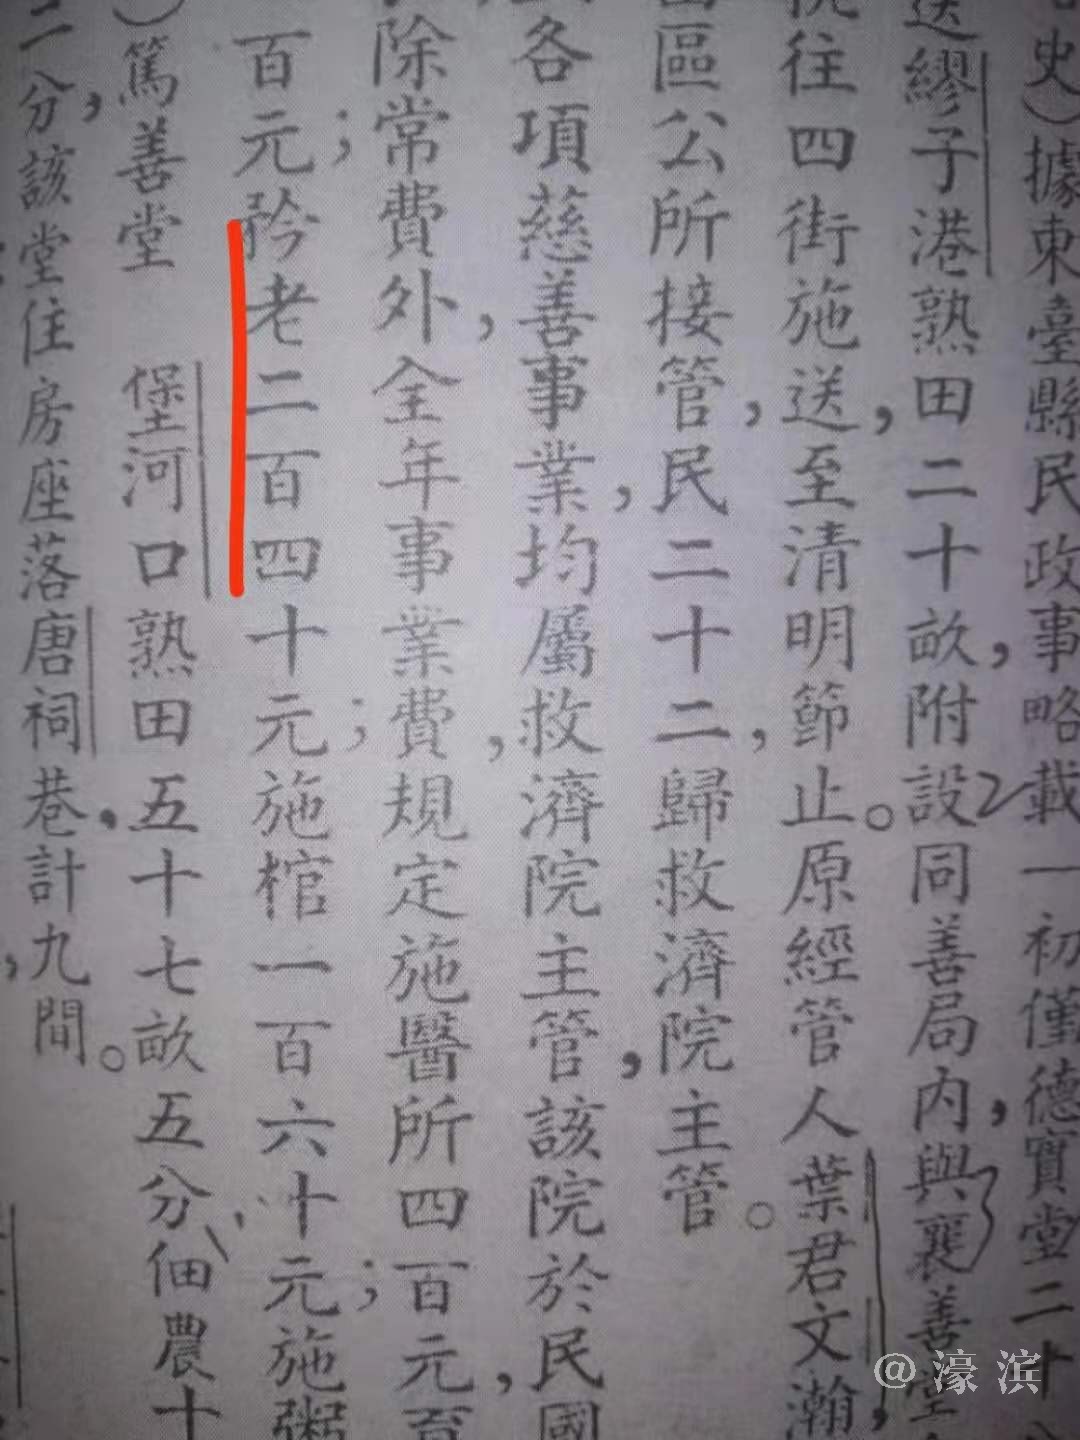 史）據東臺縣民政事略載一初僅德實堂二十八
送繆子港熟田二十畝，附設同善局內，與襄善堂
往四街施送，至清明節止。原經管人葉君文瀚，
區公所接管，民二十二，歸救濟院主管。
各項慈善事業，均屬救濟院主管，該院於民國
除常費外，全年事業費，規定施醫所四百元，
百元；矜老二百四十元；施棺一百六十元；施粥
）篤善堂　堡河口熟田五十七畝五分、佃農十
二分，該堂住房座落唐祠巷，計九間。
@濠滨